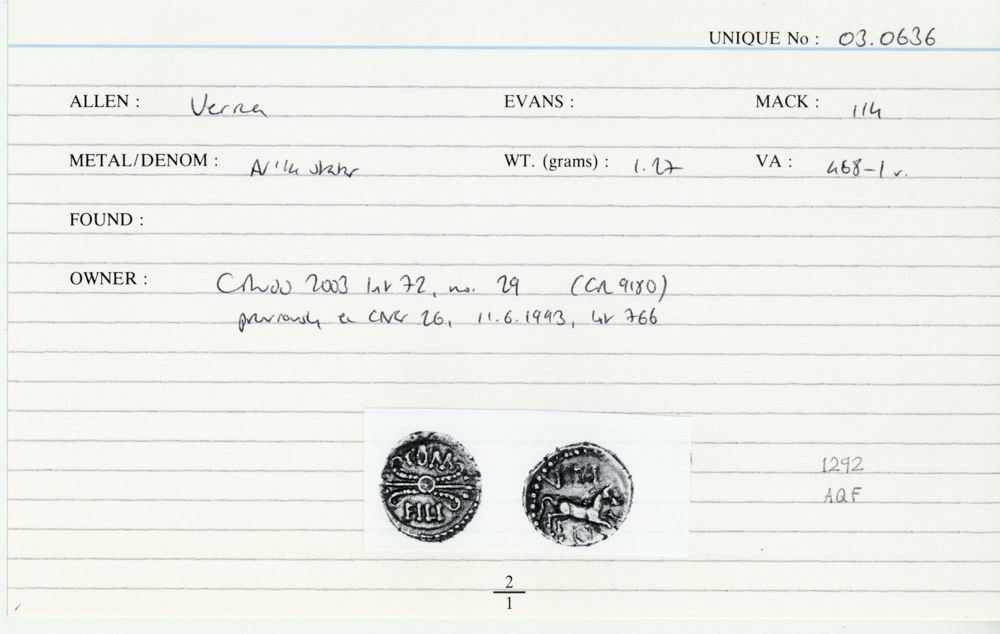 UNIQUE No : 03.0636
ALLEN : Verica EVANS : MACK : 114
METAL/DENOM : AV 1/4 stater WT. (grams) : 1.27 VA : 468-1 v.
FOUND :
OWNER : 2003 list 72, no. 29 (CR 9180)
previously ex CNG 26, 11.6.1993, lot 766
COM
FILI
1292
AQF
2
1